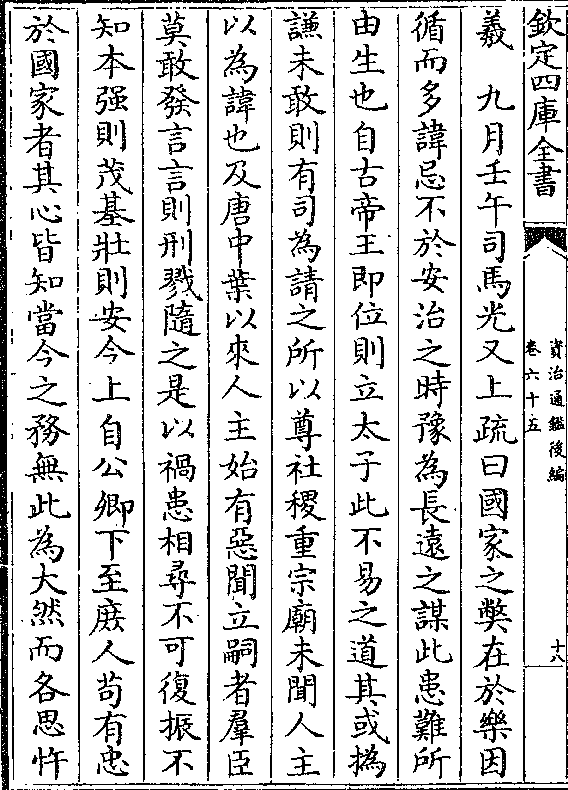 欽定四庫全書
資治通鑑後編
卷六十五
十八
羲　九月壬午司馬光又上疏曰國家之獘在於樂因
循而多諱忌不於安治之時豫為長遠之謀此患難所
由生也自古帝王即位則立太子此不易之道其或撝
謙未敢則有司為請之所以尊社稷重宗廟未聞人主
以為諱也及唐中葉以來人主始有惡聞立嗣者羣臣
莫敢發言言則刑戮隨之是以禍患相尋不可復振不
知本强則茂基壯則安今上自公卿下至庶人苟有忠
於國家者其心皆知當今之務無此為大然而各思忤